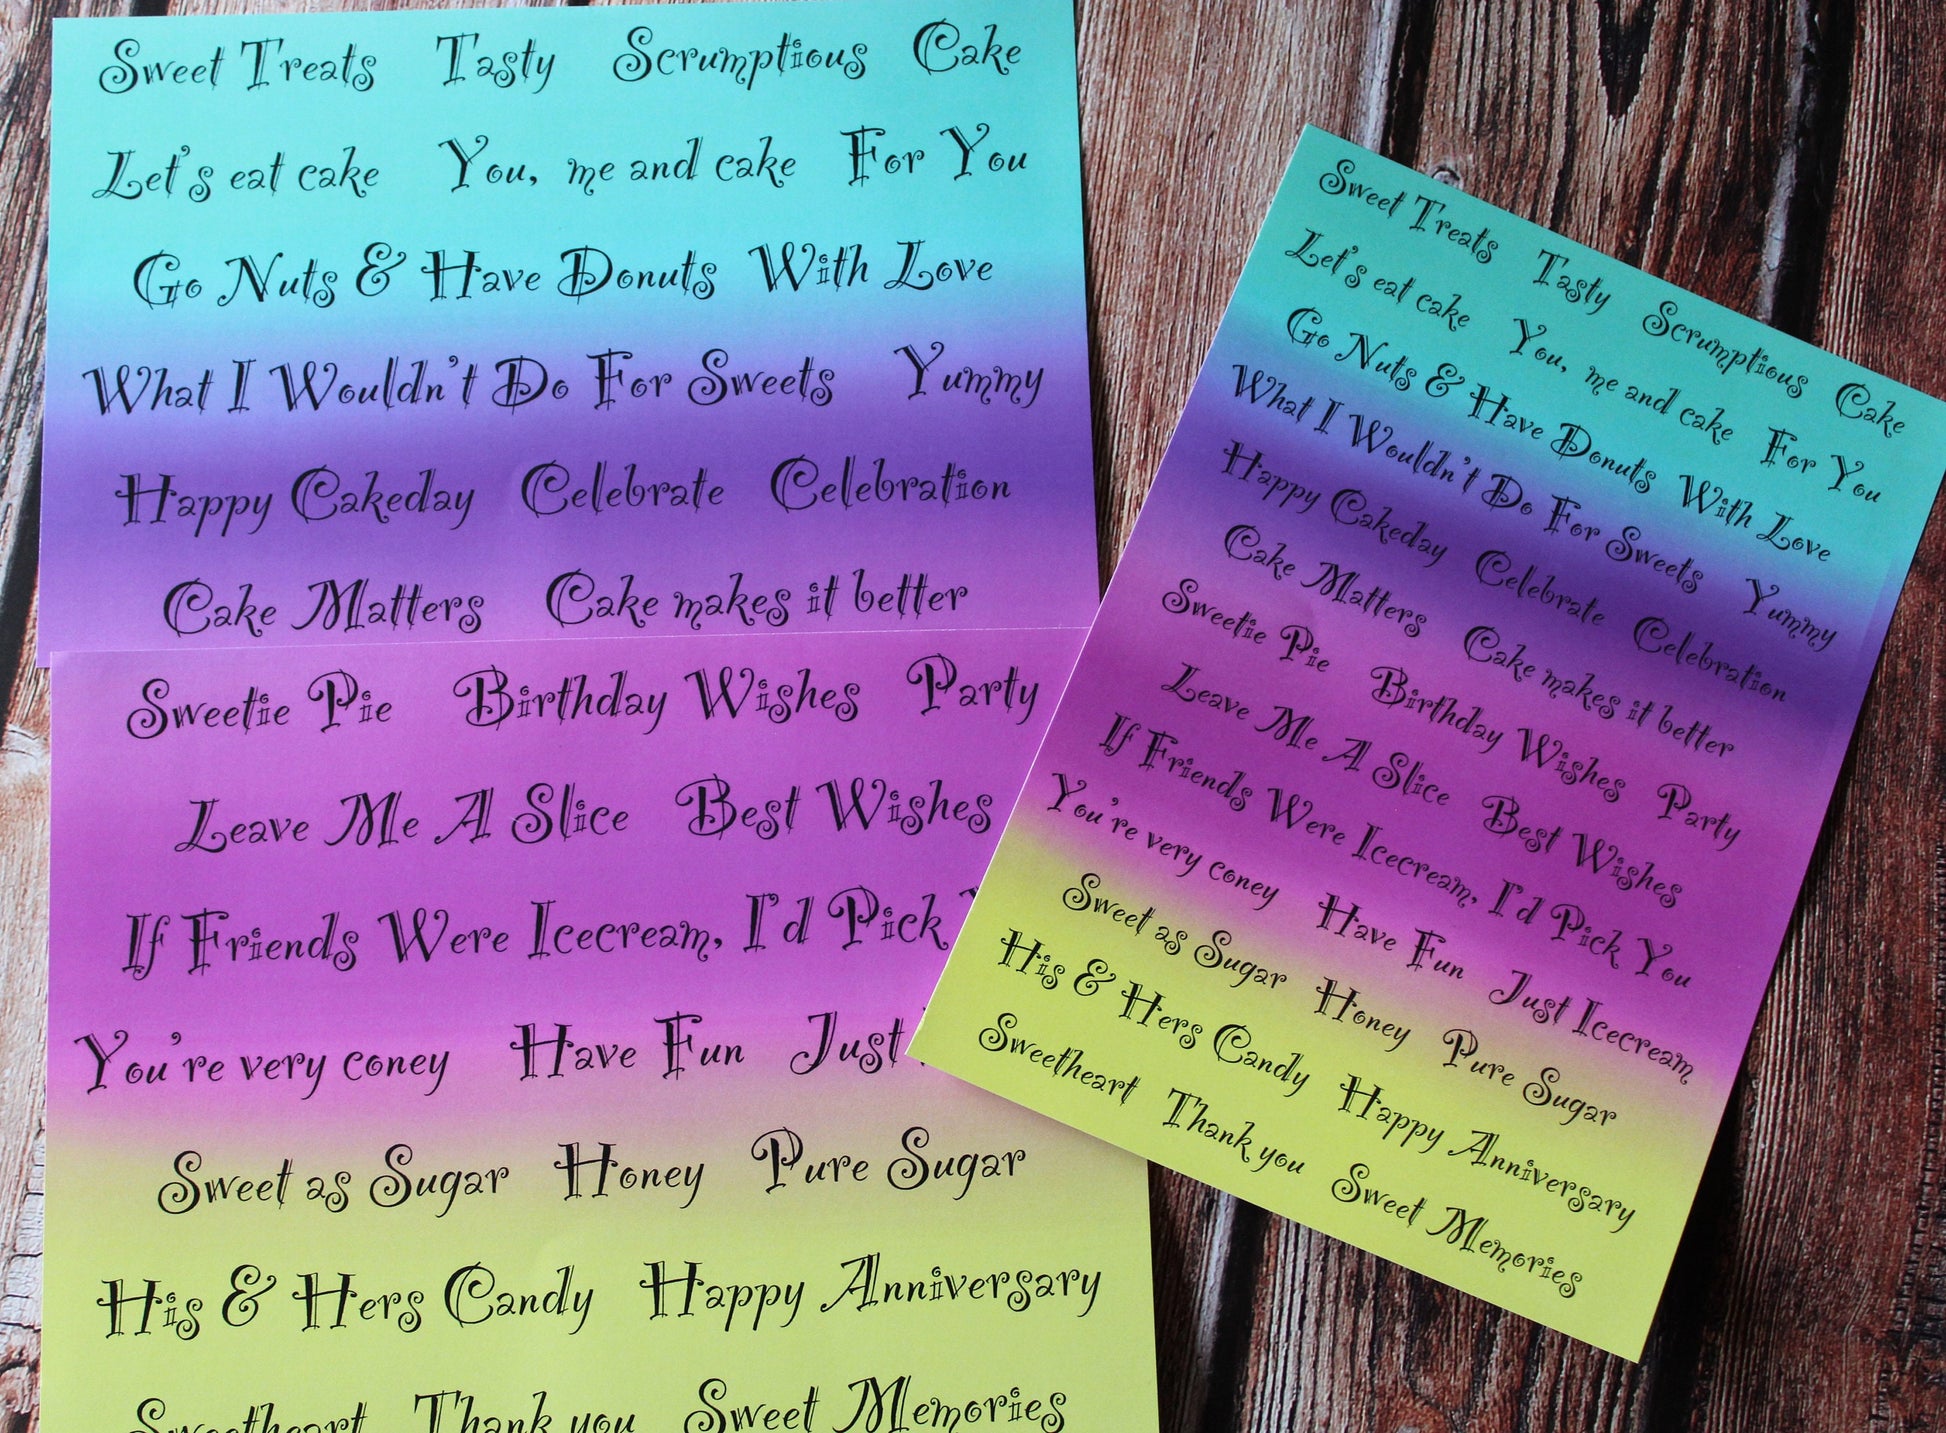 Sweet Treats Tasty Scrumptious Cake
Let's eat cake You, me and cake For You
Go Nuts & Have Donuts With Love
What I Wouldn't Do For Sweets Yummy
Happy Cakeday Celebrate Celebration
Cake Matters Cake makes it better
Sweetie Pie Birthday Wishes Party
Leave Me A Slice Best Wishes
If Friends Were Icecream, I'd Pick
You're very coney Have Fun Just
Sweet as Sugar Honey Pure Sugar
His & Hers Candy Happy Anniversary
Sweetheart Thank you Sweet Memories
Sweet Treats Tasty Scrumptious Cake
Let's eat cake You, me and cake For You
Go Nuts & Have Donuts With Love
What I Wouldn't Do For Sweets Yummy
Happy Cakeday Celebrate Celebration
Cake Matters Cake makes it better
Sweetie Pie Birthday Wishes Party
Leave Me A Slice Best Wishes
If Friends Were Icecream, I'd Pick You
You're very coney Have Fun Just Icecream
Sweet as Sugar Honey Pure Sugar
His & Hers Candy Happy Anniversary
Sweetheart Thank you Sweet Memories